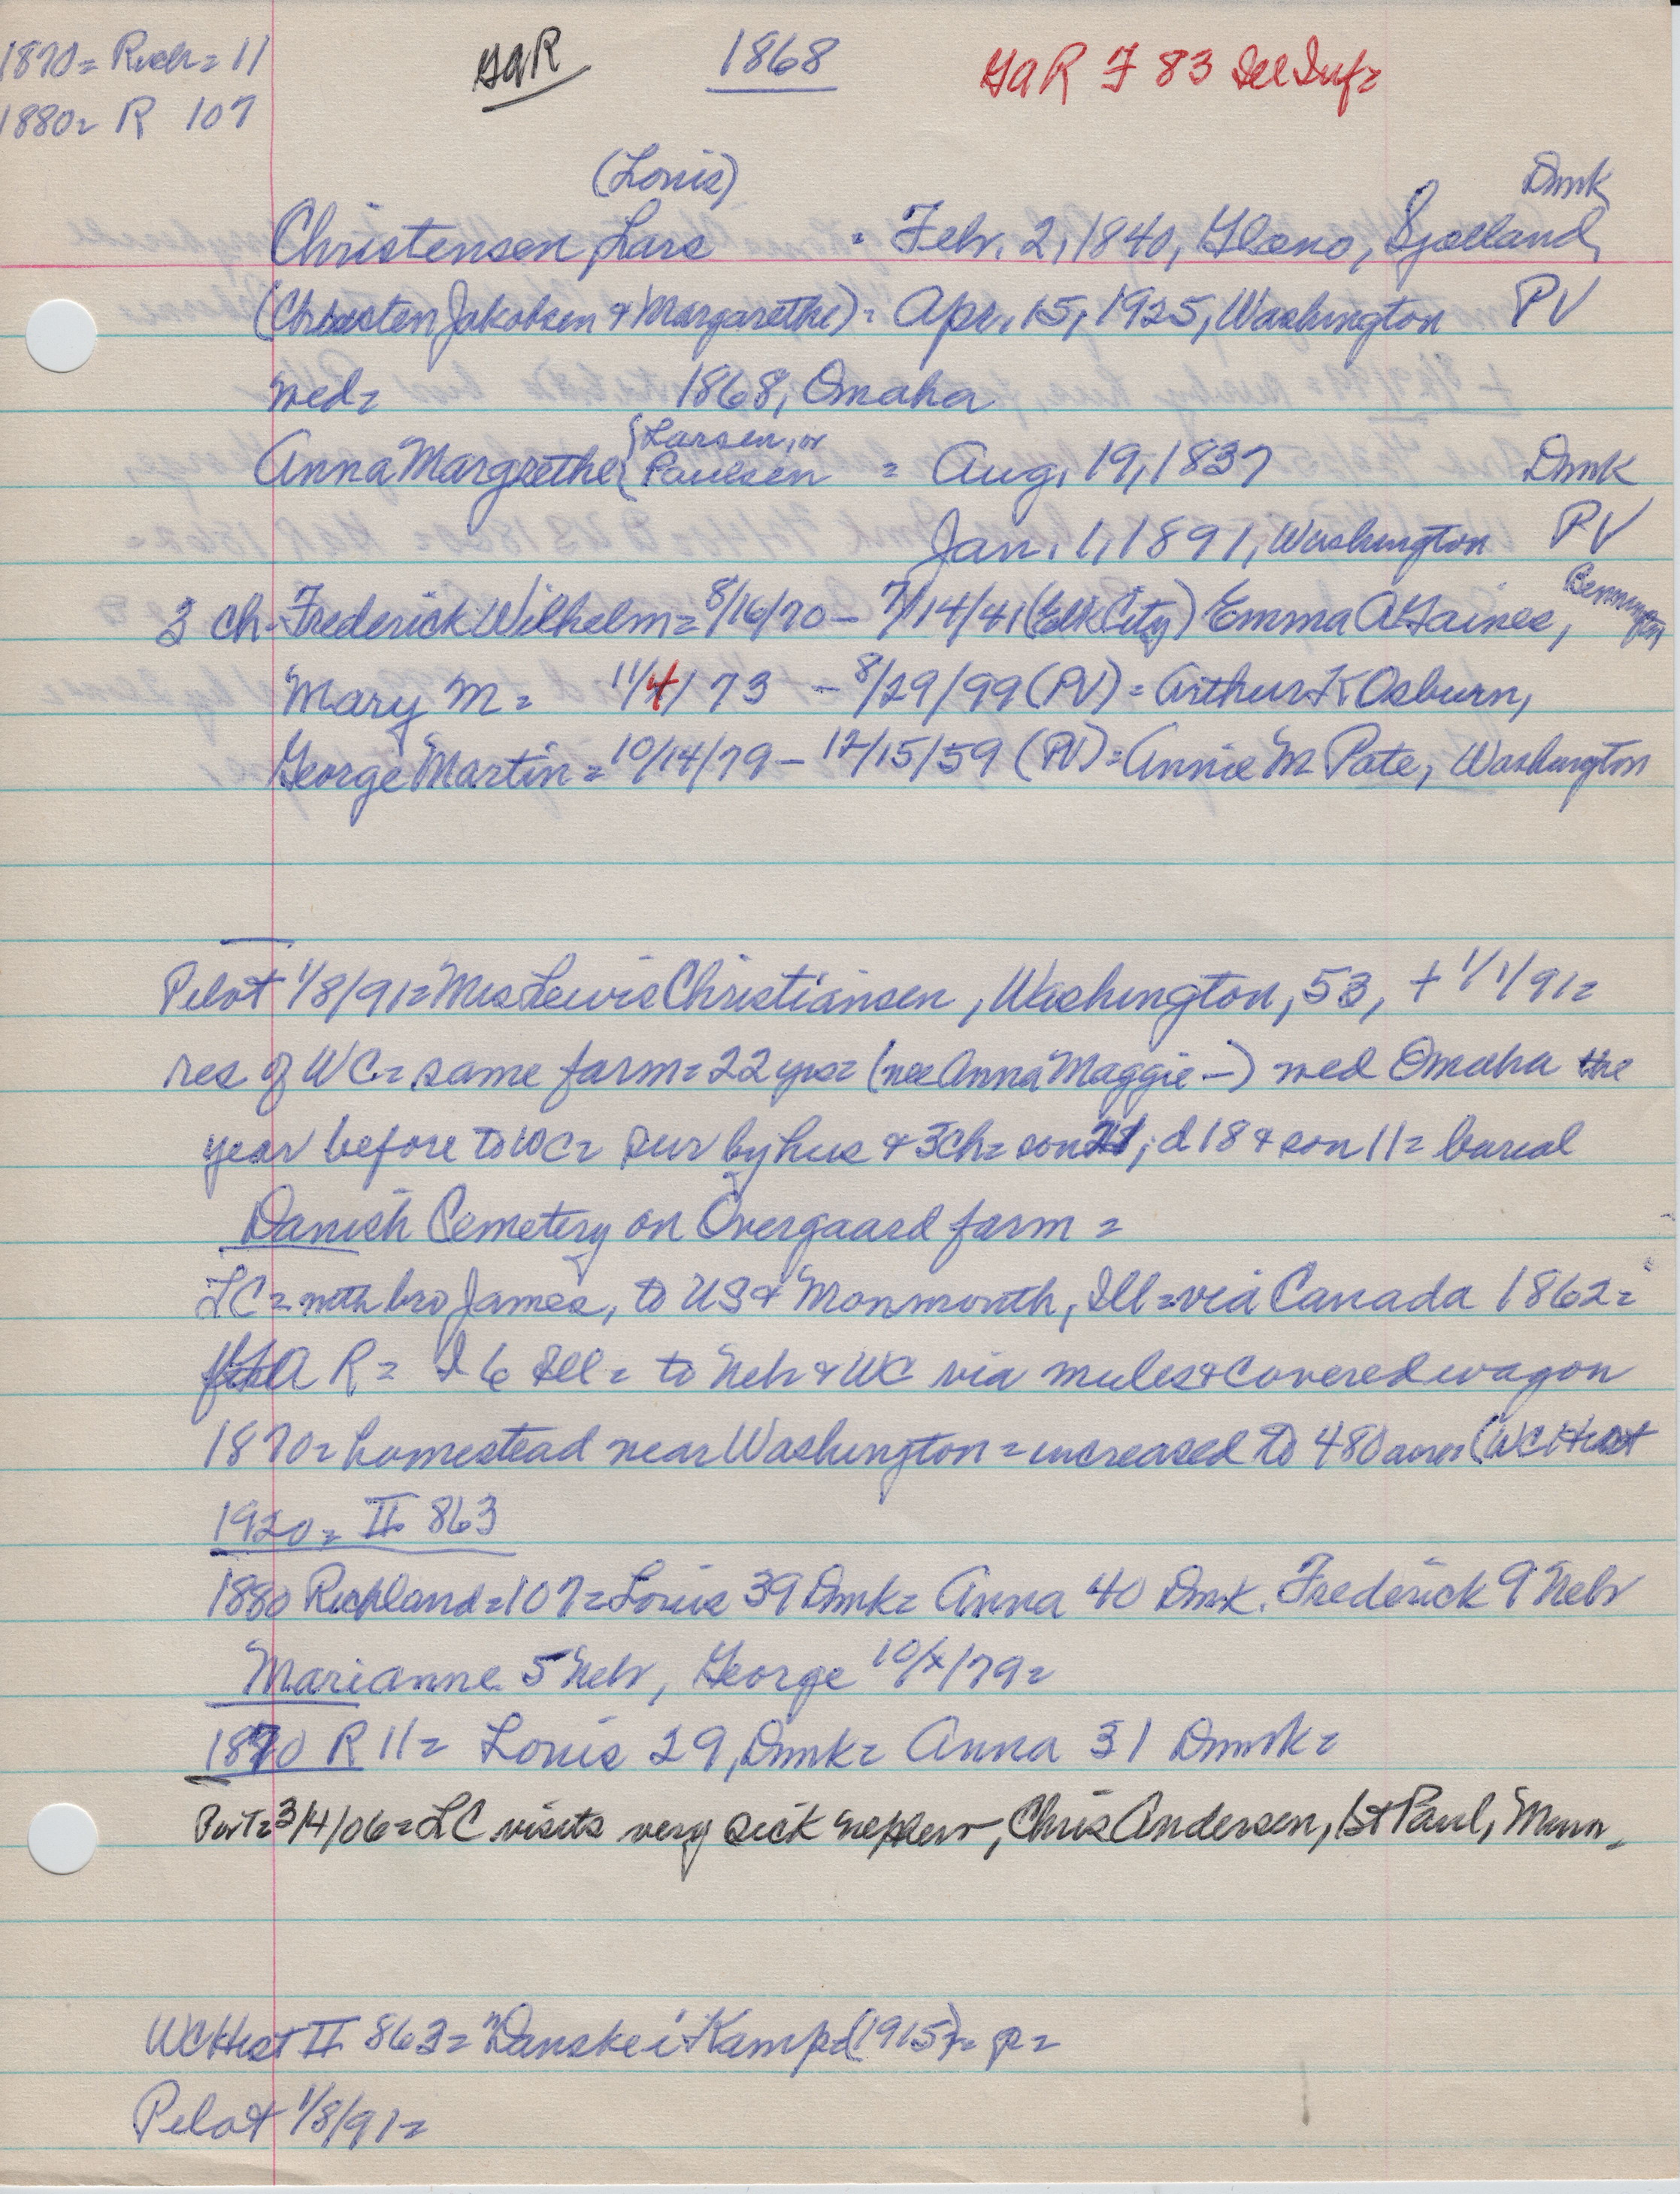 1870= Rich= 11
GAR
1868
GAR F 83 Ill Inf=
1880= R 107
(Louis)
Dmk
Christensen, Lars = Feb. 2, 1840, Glæno, Sjælland,
(Christen Jakobsen & Margarethe) = Apr. 15, 1925, Washington PV
wed= 1868, Omaha
{Larsen, or
Anna Margrethe {Paulsen = Aug. 19, 1837 Dmk
Jan. 1, 1891, Washington PV
3 ch- Frederick Wilhelm= 8/16/70 - 7/14/41 (Elk City) Emma A Gaines, Bennington
Mary M= 11/4/73 - 8/29/99 (PV) = Arthur K Osburn,
George Martin= 10/14/79 - 12/15/59 (PV) = Annie M Pate, Washington
Pilot 1/8/91= Mrs Lewis Christiansen, Washington, 53, + 1/1/91=
res of WC= same farm= 22 yrs= (nee Anna Maggie -) wed Omaha the
year before to WC= sur by hus & 3 ch= son 21; d 18 & son 11= burial
Danish Cemetery on Overgaard farm =
LC= with bro James, to US & Monmouth, Ill= via Canada 1862=
GAR= I 6 Ill= to Neb & WC via mules & covered wagon
1870= homestead near Washington= increased to 480 acres (WC Hist
1920= II 863
1880 Richland= 107= Louis 39 Dmk= Anna 40 Dmk. Frederick 9 Neb
Marianne 5 Neb, George 10/x/79=
1870 R 11= Louis 29, Dmk= Anna 31 Dmk=
3/4/06= LC visits very sick nephew, Chris Andersen, St Paul, Minn.
WC Hist II 863= "Danske i Kamp" (1915)= p=
Pilot 1/8/91=